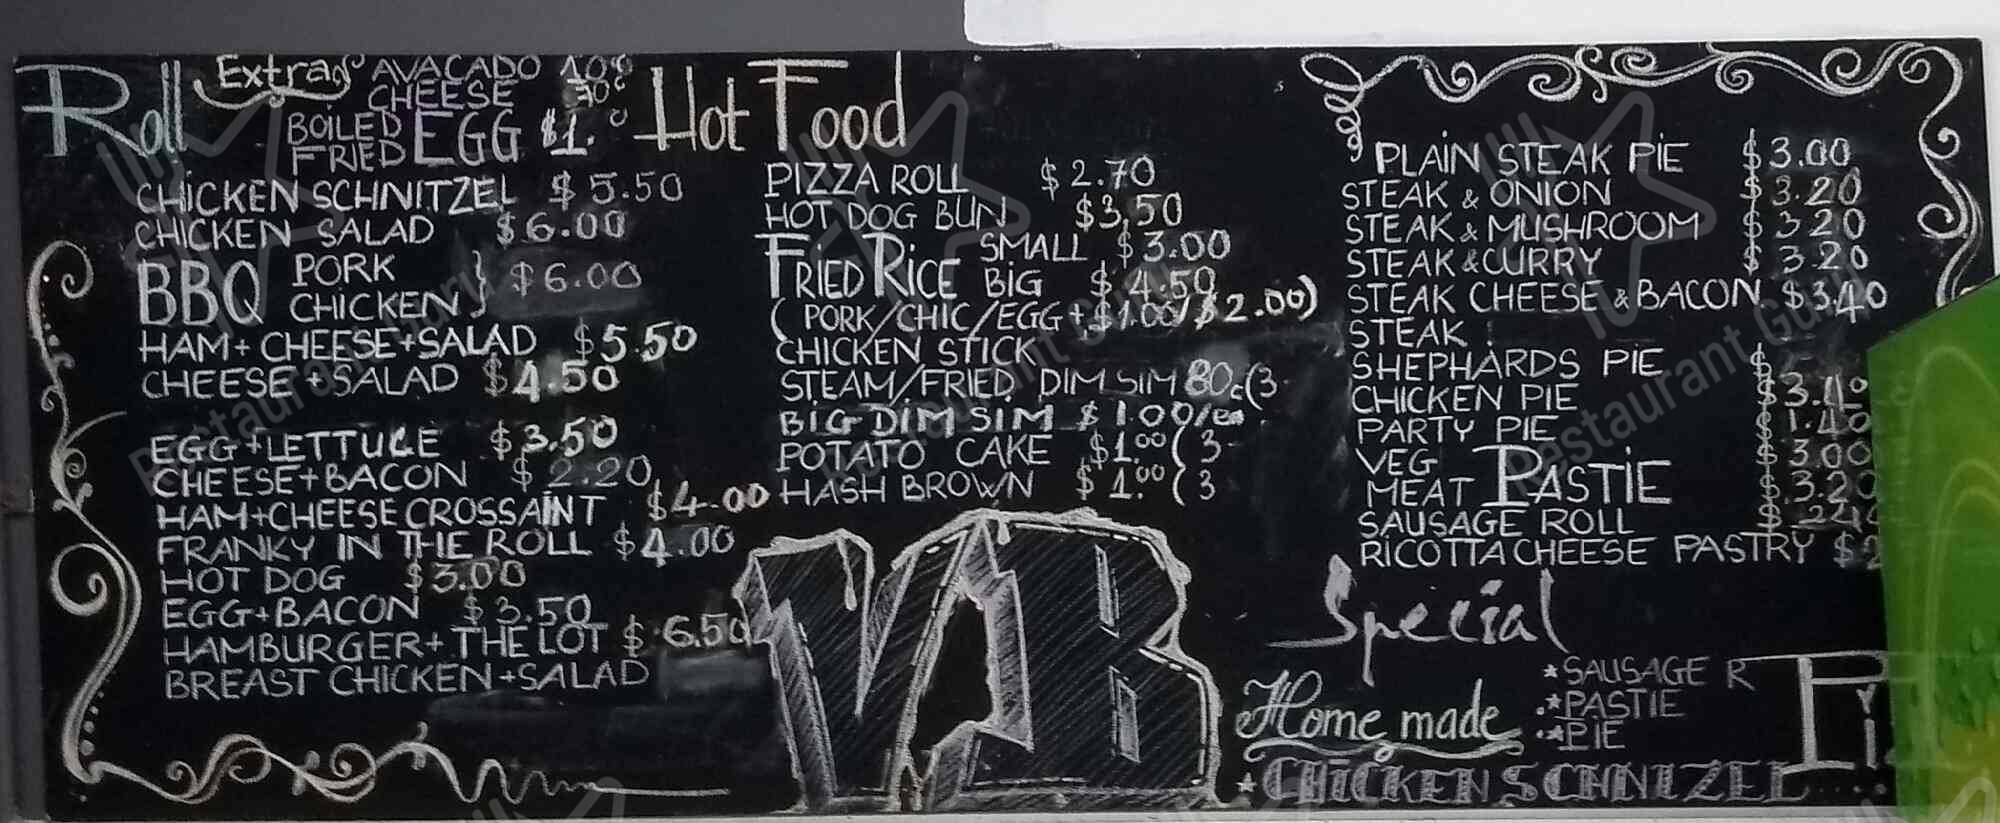 Roll
Extras AVACADO
CHEESE
BOILED
FRIED EGG $1.
CHICKEN SCHNITZEL $5.50
CHICKEN SALAD $6.00
BBQ PORK
CHICKEN } $6.00
HAM+CHEESE+SALAD $5.50
CHEESE+SALAD $4.50
EGG+LETTUCE $3.50
CHEESE+BACON $2.20
HAM+CHEESE CROSSAINT $4.00
FRANKY IN THE ROLL $4.00
HOT DOG $3.00
EGG+BACON $3.50
HAMBURGER+THE LOT $6.50
BREAST CHICKEN+SALAD
Hot Food
PIZZA ROLL $2.70
HOT DOG BUN $3.50
FRIED RICE SMALL $3.00
BIG $4.50
(PORK/CHIC/EGG+$1.00/$2.00)
CHICKEN STICK
STEAM/FRIED DIM SIM 80c(3
BIG DIM SIM $1.00/ea
POTATO CAKE $1.00(3
HASH BROWN $1.00(3
VB
PLAIN STEAK PIE $3.00
STEAK & ONION $3.20
STEAK & MUSHROOM $3.20
STEAK & CURRY $3.20
STEAK CHEESE & BACON $3.40
STEAK
SHEPHARDS PIE $
CHICKEN PIE $3.40
PARTY PIE $1.40
VEG $3.00
MEAT PASTIE $3.20
SAUSAGE ROLL $
RICOTTA CHEESE PASTRY $2
Special
Home made
*SAUSAGE R
*PASTIE
*PIE
*CHICKEN SCHNIZEL
Restaurant Guru
Restaurant Guru